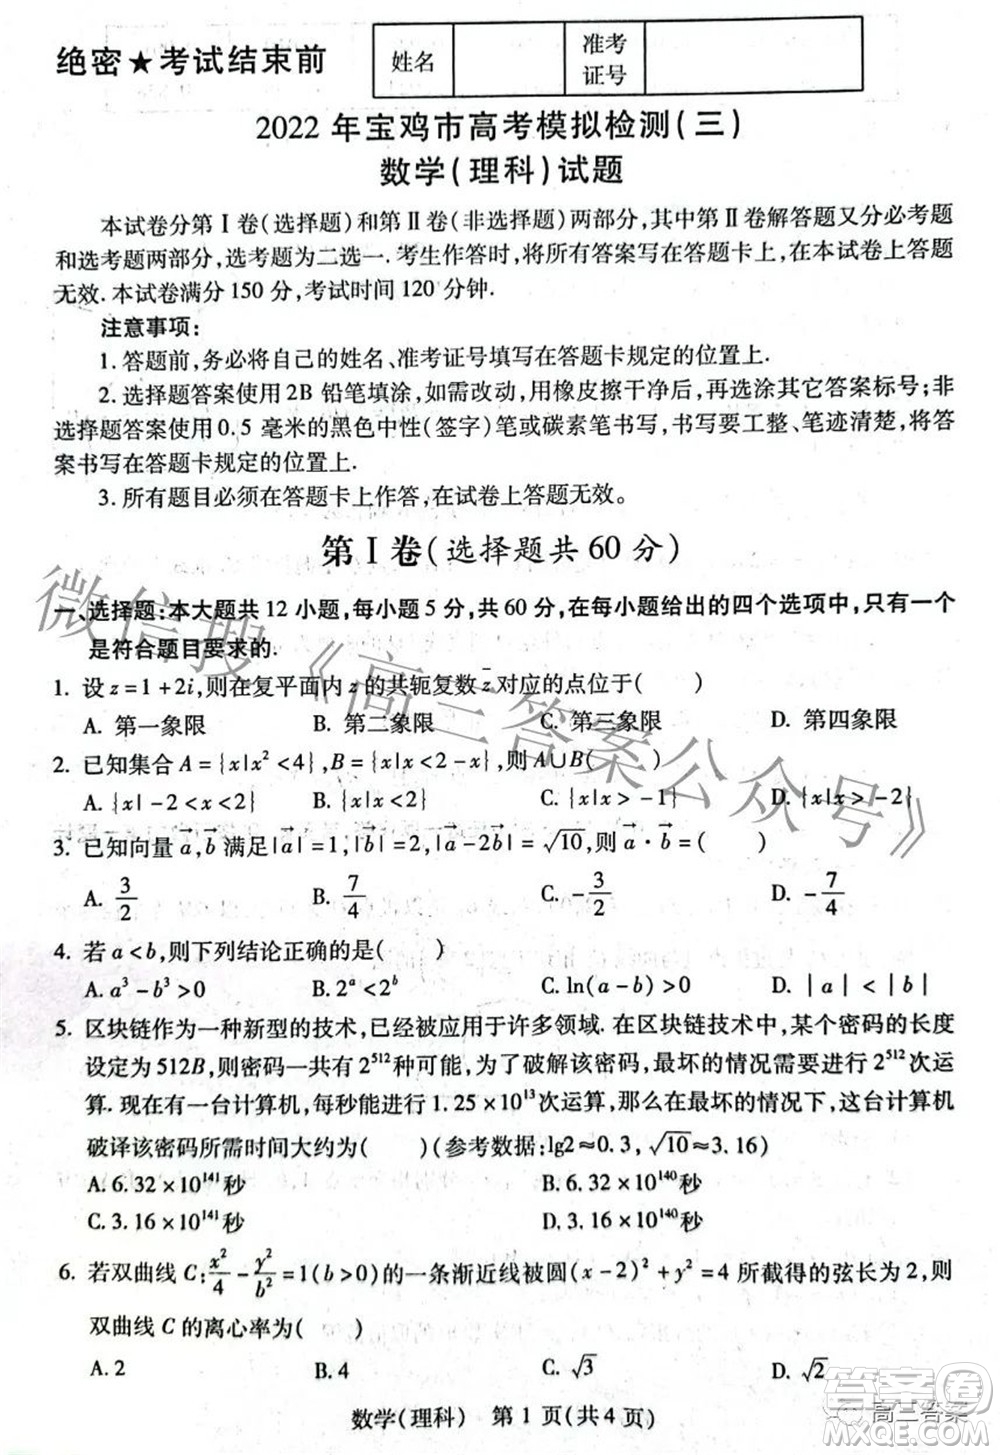 绝密★考试结束前
姓名
准考证号
2022年宝鸡市高考模拟检测(三)
数学(理科)试题
本试卷分第Ⅰ卷(选择题)和第Ⅱ卷(非选择题)两部分,其中第Ⅱ卷解答题又分必考题
和选考题两部分,选考题为二选一.考生作答时,将所有答案写在答题卡上,在本试卷上答题
无效.本试卷满分150分,考试时间120分钟.
注意事项:
1.答题前,务必将自己的姓名、准考证号填写在答题卡规定的位置上.
2.选择题答案使用2B 铅笔填涂,如需改动,用橡皮擦干净后,再选涂其它答案标号;非
选择题答案使用0.5毫米的黑色中性(签字)笔或碳素笔书写,书写要工整、笔迹清楚,将答
案书写在答题卡规定的位置上.
3.所有题目必须在答题卡上作答,在试卷上答题无效。
第Ⅰ卷(选择题共60分)
一、选择题:本大题共12小题,每小题5分,共60分,在每小题给出的四个选项中,只有一个
是符合题目要求的.
1. 设z=1+2i,则在复平面内z的共轭复数z̄对应的点位于(  )
A. 第一象限 B. 第二象限 C. 第三象限 D. 第四象限
2. 已知集合A={x|x²<4},B={x|x<2-x},则A∪B(  )
A. {x|-2<x<2} B. {x|x<2} C. {x|x>-1} D. {x|x>-2}
3. 已知向量a⃗,b⃗满足|a⃗|=1,|b⃗|=2,|a⃗-2b⃗|=√10,则a⃗·b⃗=(  )
A. 3/2 B. 7/4 C. -3/2 D. -7/4
4. 若a<b,则下列结论正确的是(  )
A. a³-b³>0 B. 2ᵃ<2ᵇ C. ln(a-b)>0 D. |a|<|b|
5. 区块链作为一种新型的技术,已经被应用于许多领域.在区块链技术中,某个密码的长度
设定为512B,则密码一共有2⁵¹²种可能,为了破解该密码,最坏的情况需要进行2⁵¹²次运
算.现在有一台计算机,每秒能进行1.25×10¹³次运算,那么在最坏的情况下,这台计算机
破译该密码所需时间大约为(  )(参考数据:lg2≈0.3,√10≈3.16)
A. 6.32×10¹⁴¹秒 B. 6.32×10¹⁴⁰秒
C. 3.16×10¹⁴¹秒 D. 3.16×10¹⁴⁰秒
6. 若双曲线C:x²/4-y²/b²=1(b>0)的一条渐近线被圆(x-2)²+y²=4所截得的弦长为2,则
双曲线C的离心率为(  )
A. 2 B. 4 C. √3 D. √2
数学(理科) 第1页(共4页)
微信搜《高三答案公众号》
答案圈
高三答案